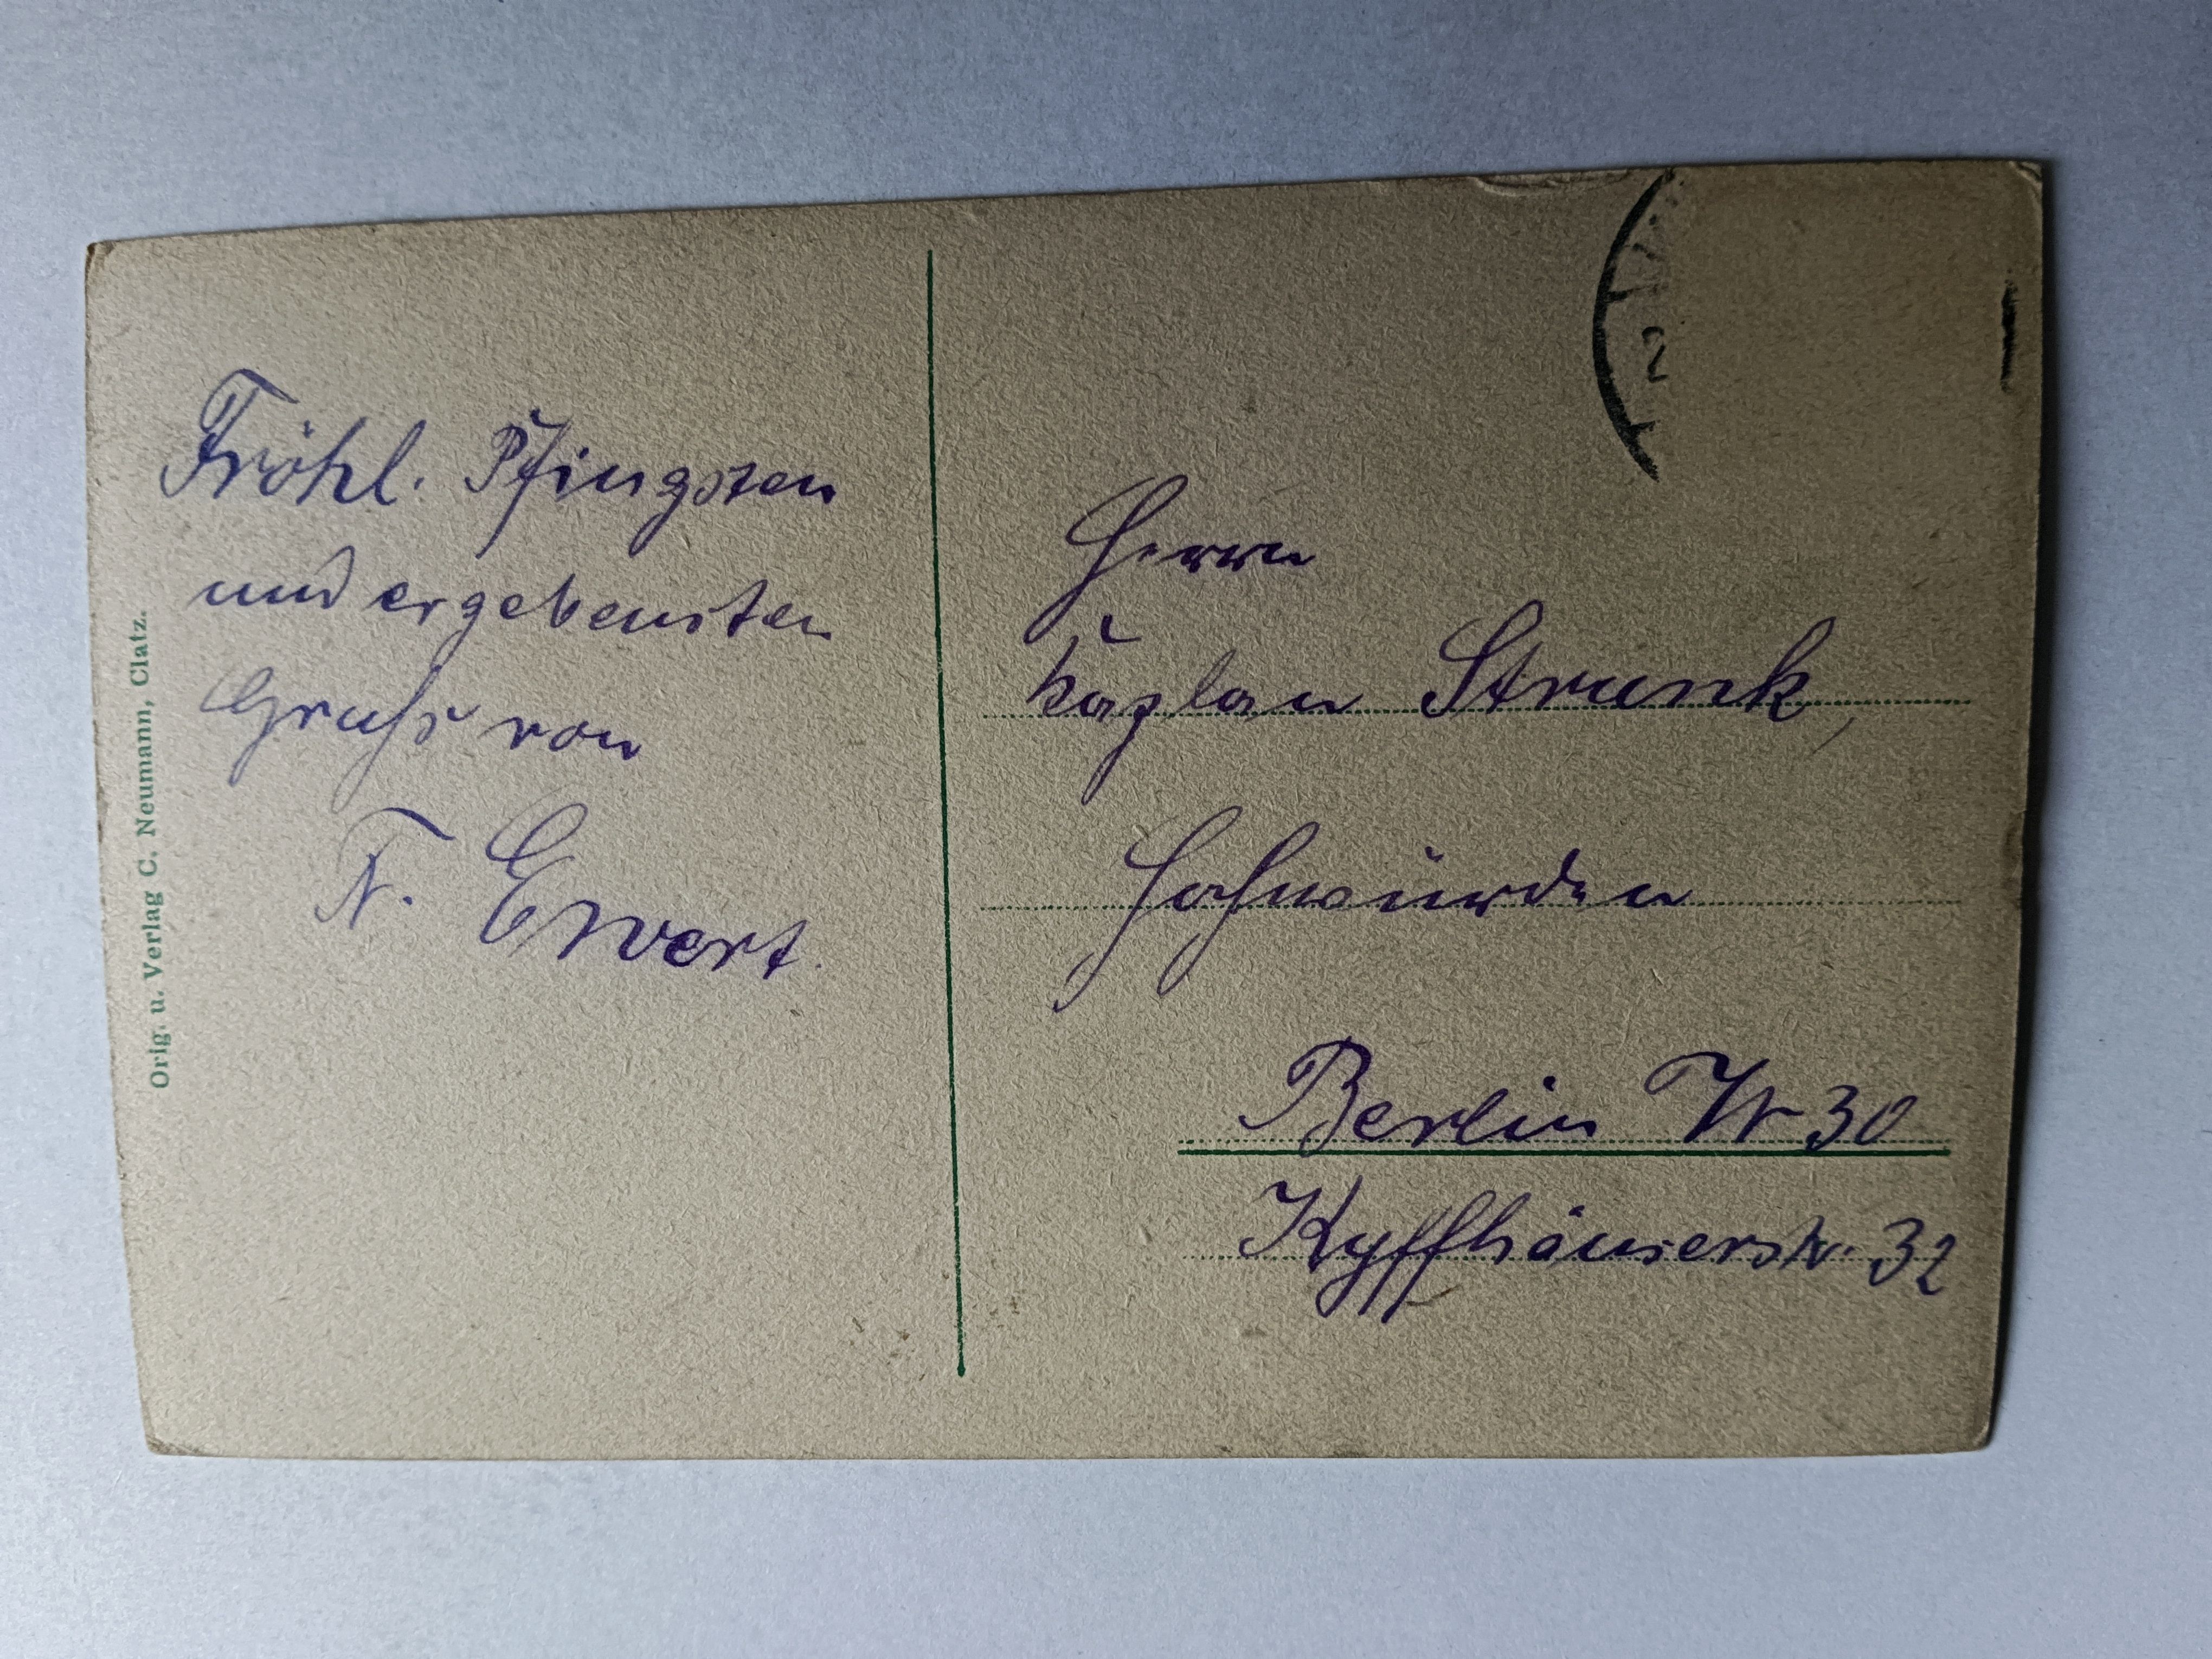 Fröhl. Pfingsten
und ergebensten
Gruß von
F. Ewert.
Orig. u. Verlag C. Neumann, Glatz.
2
Herrn
Kaplan Strunk,
Hochwürden
Berlin W 30
Kyffhäuserstr. 32